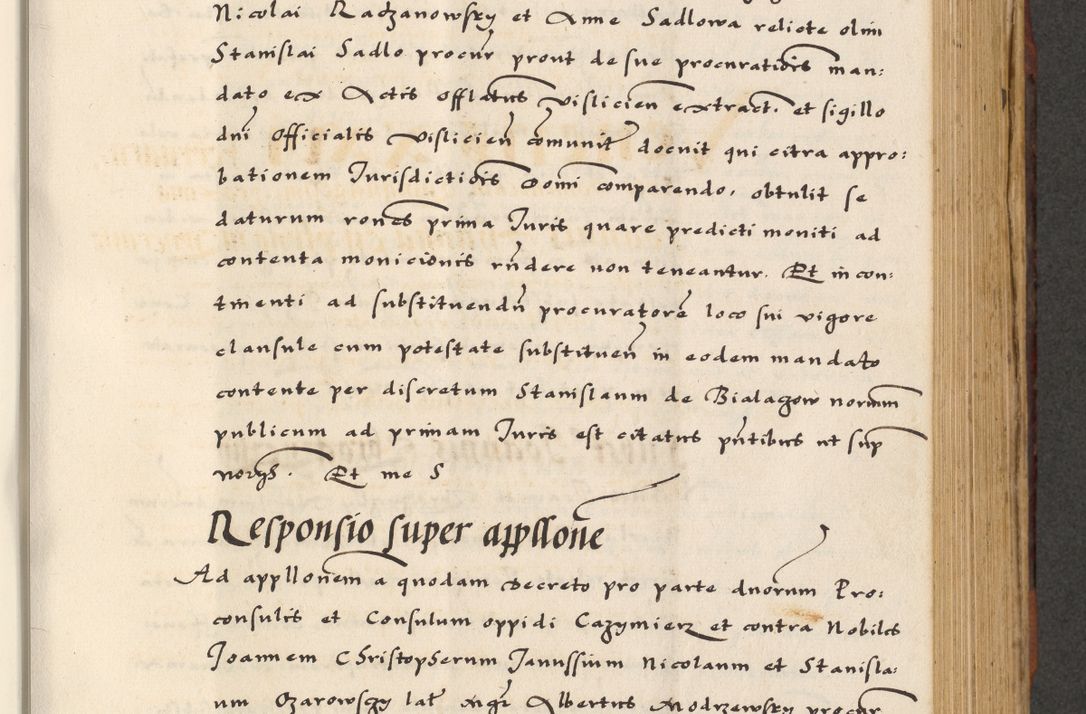 Nicolai Radzanowsky et Anne Sadlowa relicte olim
Stanislai Sadlo procur prout de sue procurationis man:
dato ex Actis offlatus vislicien extract. et sigillo
dni officialis vislicien comuniter docuit qui citra appro:
bationem Iurisdictiois domi comparendo, obtulit se
daturum rones prima Iuris quare predicti moniti ad
contenta monicionis rndere non teneantur. Et in con:
tinenti ad substituendn procuratore loco sui vigore
clausule cum potestate substituen in eodem mandato
contente per discretum Stanislaum de Bialagow norium
publicum ad primam Iuris est citatus pntibus ut sup
norijs. Et me S
Responsio super appllone
Ad appllonem a quodam decreto pro parte dnorum Pro:
consulis et Consulum oppidi Cazymierz et contra Nobiles
Joannem Christopherum Janussium Nicolaum et Stanisla:
um Ozarowsczy lat mgr Albertus Modrzewsky procur